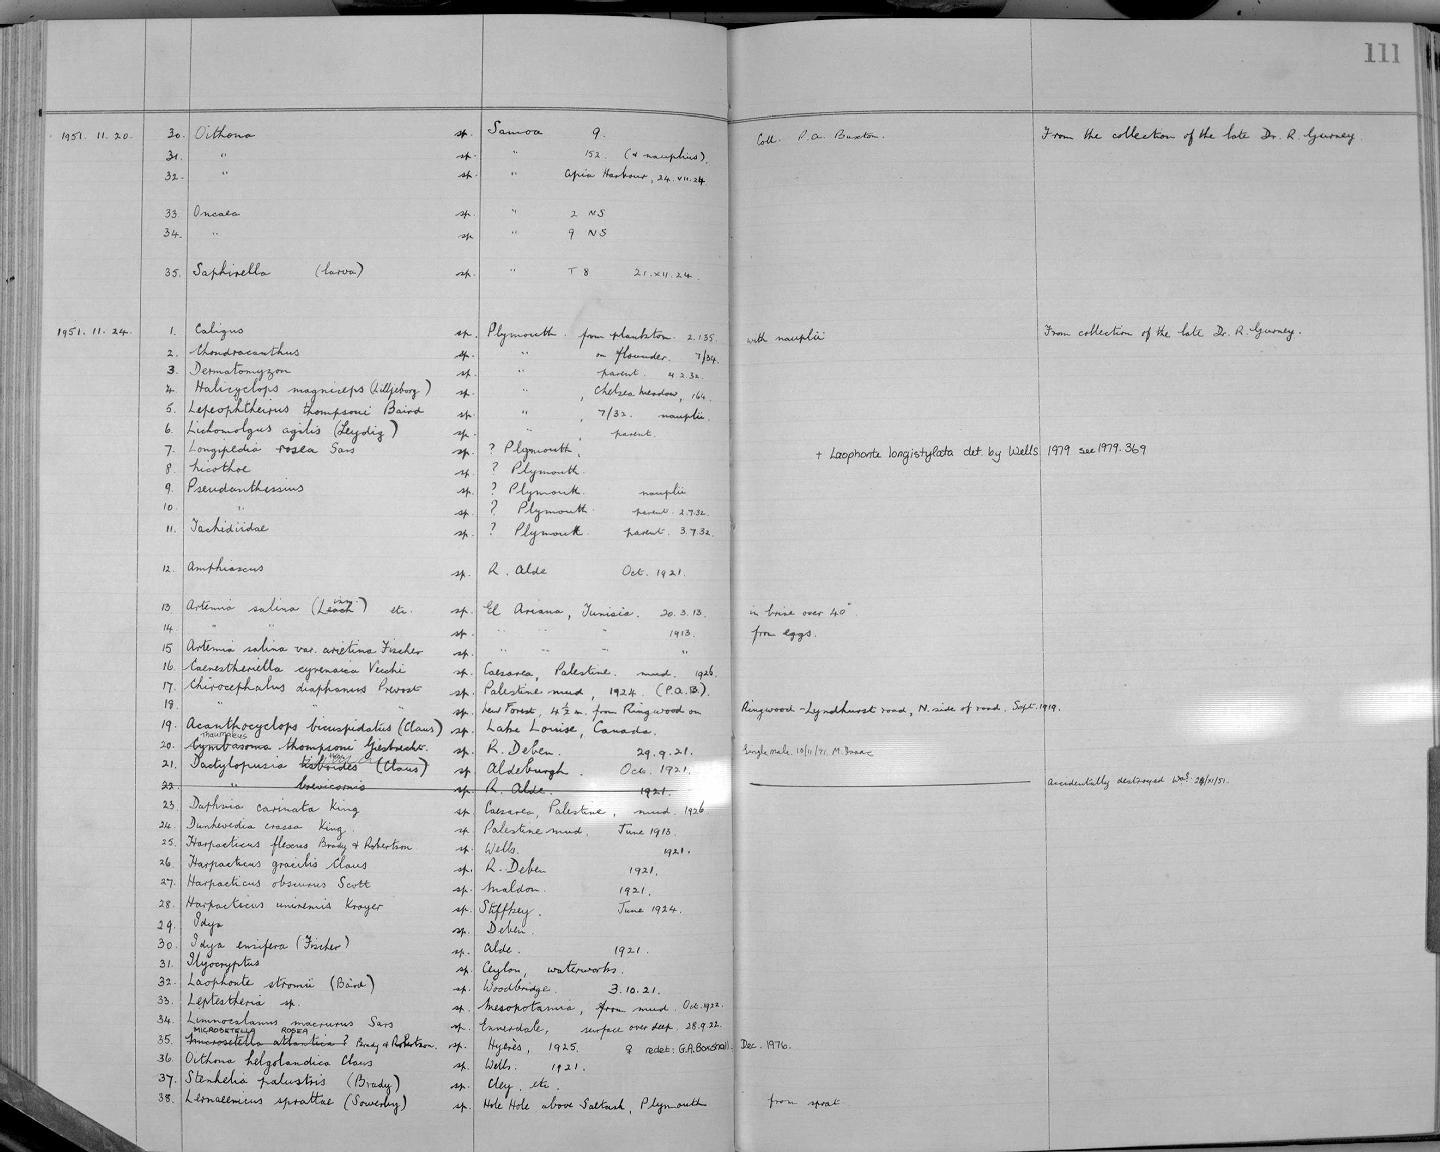 111
1951. 11. 20. 30. Oithona sp. Samoa 9. Coll. P.A. Buxton. From the collection of the late Dr. R. Gurney.
31. " sp. " 152. (+ nauplius).
32. " sp. " Apia Harbour, 24.VII.24
33. Oncaea sp. " 2 NS
34. " sp " 9 NS
35. Saphirella (larva) sp. " T 8 21.XII.24.
1951. 11. 24. 1. Caligus sp. Plymouth. from plankton. 2.135. with nauplii From collection of the late Dr. R. Gurney.
2. Chondracanthus sp. " on flounder. 7/34.
3. Dermatomyzon sp. " parent. 4.2.32.
4. Halicyclops magniceps (Lilljeborg) sp. " , Chelsea Meadow, 164.
5. Lepeophtheirus thompsoni Baird sp. " , 7/32. nauplii.
6. Lichomolgus agilis (Leydig) sp. " , parent.
7. Longipedia rosea Sars sp. ? Plymouth, + Laophonte longistylata det. by Wells 1979 see 1979.369
8. Nicothoe sp. ? Plymouth.
9. Pseudanthessius sp. ? Plymouth. nauplii
10. " sp. ? Plymouth. parent. 2.7.32.
11. Tachidiidae sp. ? Plymouth parent. 3.7.32.
12. Amphiascus sp. R. Alde Oct. 1921.
13. Artemia salina (Leach) etc. sp. El Ariana, Tunisia. 20.3.13. in brine over 40°
14 " " sp. " " " 1913. from eggs.
15 Artemia salina var. arietina Fischer sp. " " " "
16. Caenestheriella cyrenaica Vecchi sp. Caesarea, Palestine. mud. 1926.
17. Chirocephalus diaphanus Prevost sp. Palestine mud, 1924. (P.A.B.).
18. " " sp. New Forest, 4½ m. from Ringwood on Ringwood-Lyndhurst road, N. side of road. Sept. 1919.
19. Acanthocyclops bicuspidatus (Claus) sp. Lake Louise, Canada.
20. Cymbasoma thompsoni Giesbrecht. sp. R. Deben. 29.9.21. Single male. 10/11/71. M.
21. Dactylopusia tisboides (Claus) sp. Aldeburgh. Oct. 1921.
22. " brevicornis sp. R. Alde. 1921. Accidentally destroyed 28/XI/51.
23. Daphnia carinata King sp Caesarea, Palestine, mud. 1926
24. Dunhevedia crassa King. sp. Palestine mud. June 1913.
25. Harpacticus flexus Brady & Robertson sp. Wells. 1921.
26 Harpacticus gracilis Claus sp. R. Deben 1921.
27. Harpacticus obscurus Scott sp. Maldon. 1921.
28. Harpacticus uniremis Kroyer sp. Stiffkey. June 1924.
29. Idya sp. Deben.
30. Idya ensifera (Fischer) sp. Alde. 1921.
31. Ilyocryptus sp. Ceylon, waterworks.
32. Laophonte stromii (Baird) sp. Woodbridge. 3.10.21.
33. Leptestheria sp. sp. Mesopotamia, from mud. Oct. 1922.
34. Limnocalanus macrurus Sars sp. Ennerdale, surface over deep. 28.9.22.
MICROSETELLA ROSEA
35. Microsetella atlantica ? Brady & Robertson. sp. Hyères, 1925. ♀ redet: G.A. Boxshall. Dec. 1976.
36. Oithona helgolandica Claus sp. Wells. 1921.
37. Stenhelia palustris (Brady) sp. Cley. etc.
38. Lernaeenicus sprattae (Sowerby) sp. Hole Hole above Saltash, Plymouth from sprat